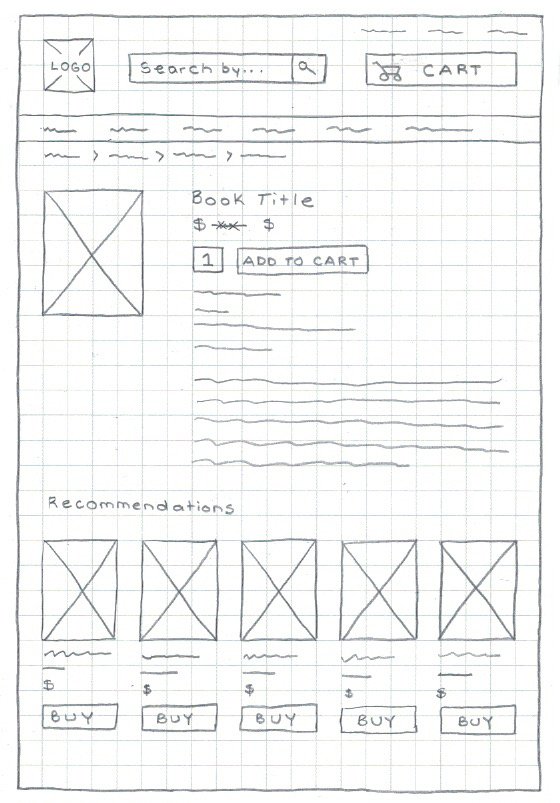 LOGO
Search by...
CART
> > >
Book Title
$ $
1 ADD TO CART
Recommendations
$ $ $ $ $
BUY BUY BUY BUY BUY